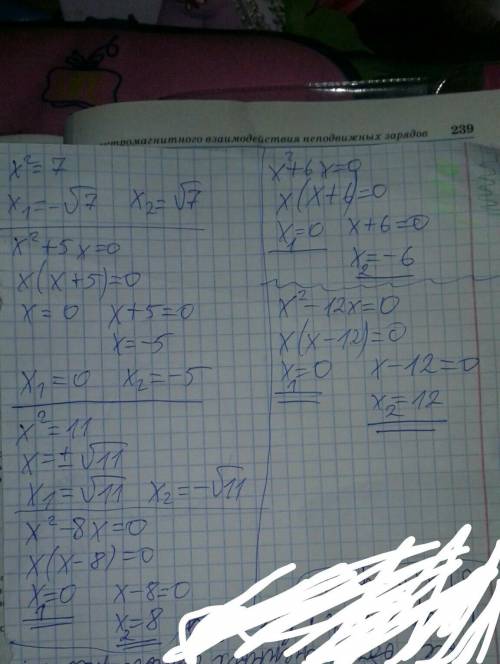 электромагнитного взаимодействия неподвижных зарядов 239
x² = 7
x₁ = -√7 x₂ = √7
x² + 5x = 0
x(x + 5) = 0
x = 0 x + 5 = 0
x = -5
x₁ = 0 x₂ = -5
x² = 11
x = ±√11
x₁ = √11 x₂ = -√11
x² - 8x = 0
x(x - 8) = 0
x₁ = 0 x - 8 = 0
x₂ = 8
x² + 6x = 0
x(x + 6) = 0
x₁ = 0 x + 6 = 0
x₂ = -6
x² - 12x = 0
x(x - 12) = 0
x₁ = 0 x - 12 = 0
x₂ = 12